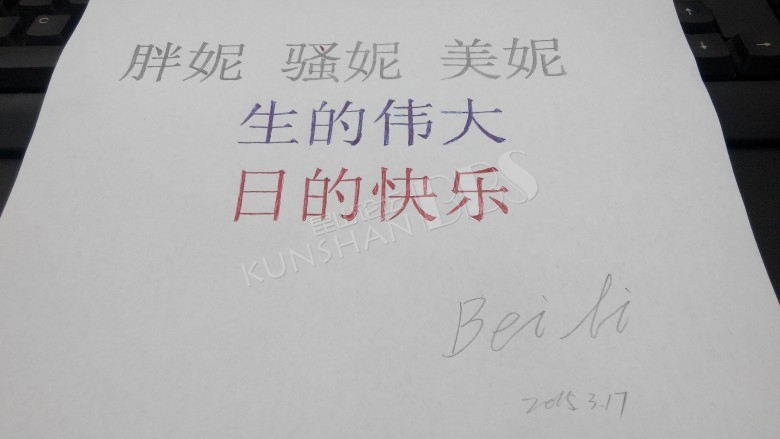 胖妮 骚妮 美妮
生的伟大
日的快乐
昆山论坛 BBS
KUNSHAN
Bei li
2015.3.17